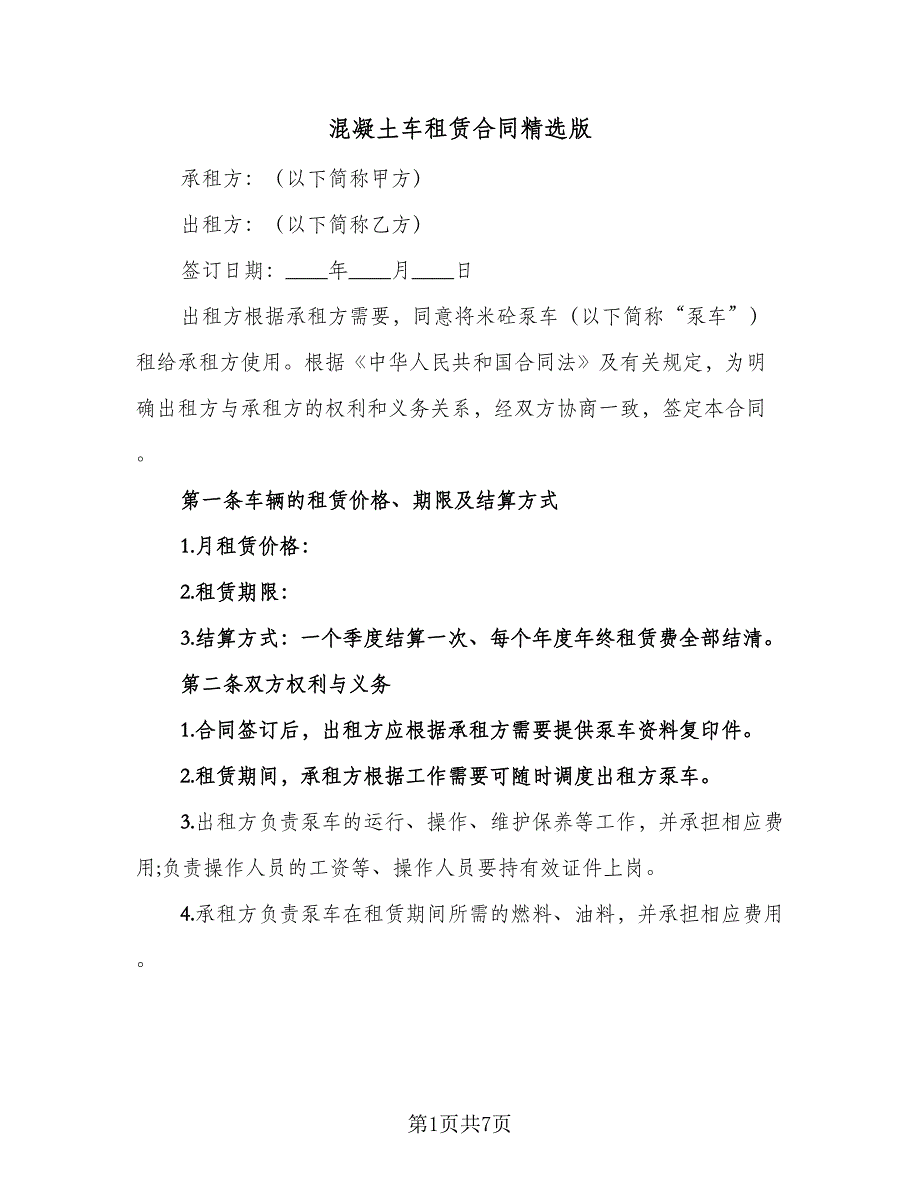 混凝土车租赁合同精选版
承租方：（以下简称甲方）
出租方：（以下简称乙方）
签订日期：____年____月____日
出租方根据承租方需要，同意将米砼泵车（以下简称“泵车”）
租给承租方使用。根据《中华人民共和国合同法》及有关规定，为明
确出租方与承租方的权利和义务关系，经双方协商一致，签定本合同
。
第一条车辆的租赁价格、期限及结算方式
1.月租赁价格：
2.租赁期限：
3.结算方式：一个季度结算一次、每个年度年终租赁费全部结清。
第二条双方权利与义务
1.合同签订后，出租方应根据承租方需要提供泵车资料复印件。
2.租赁期间，承租方根据工作需要可随时调度出租方泵车。
3.出租方负责泵车的运行、操作、维护保养等工作，并承担相应费
用;负责操作人员的工资等、操作人员要持有效证件上岗。
4.承租方负责泵车在租赁期间所需的燃料、油料，并承担相应费用
。
第1页共7页